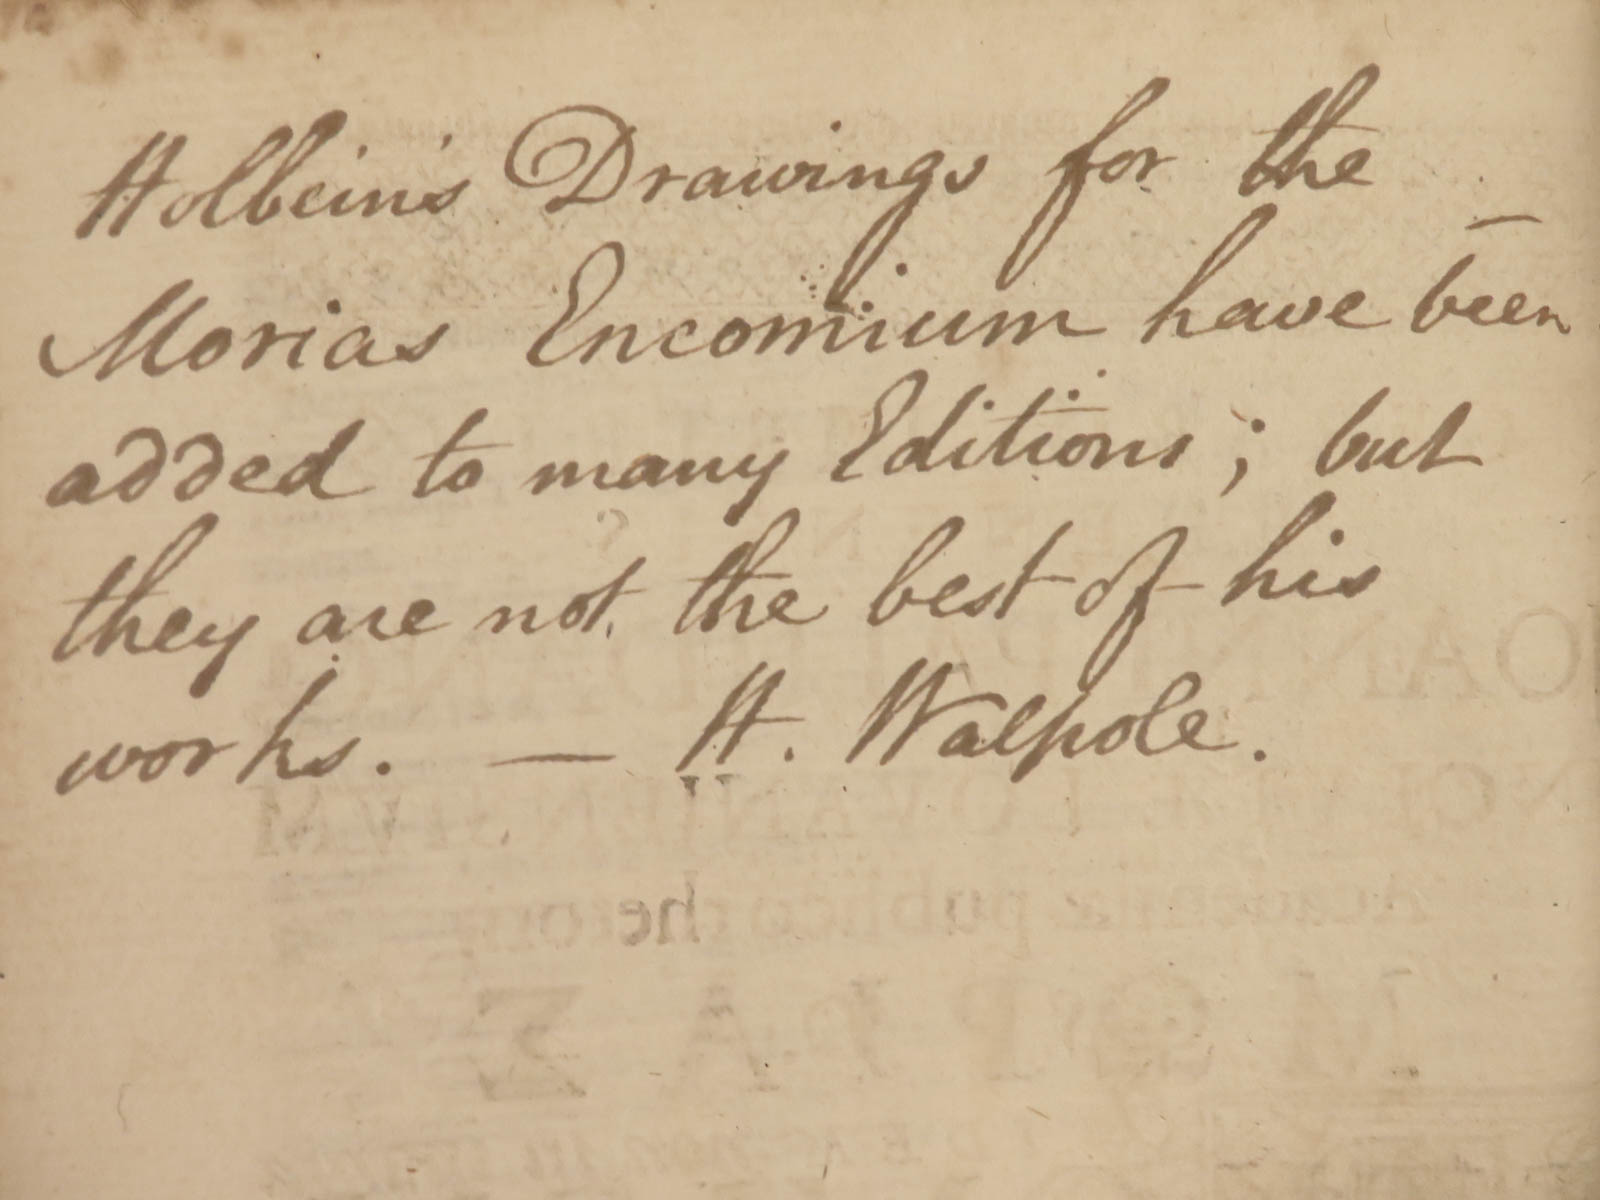 Holbein's Drawings for the
Morias Encomium have been
added to many Editions; but
they are not the best of his
works. — H. Walpole.